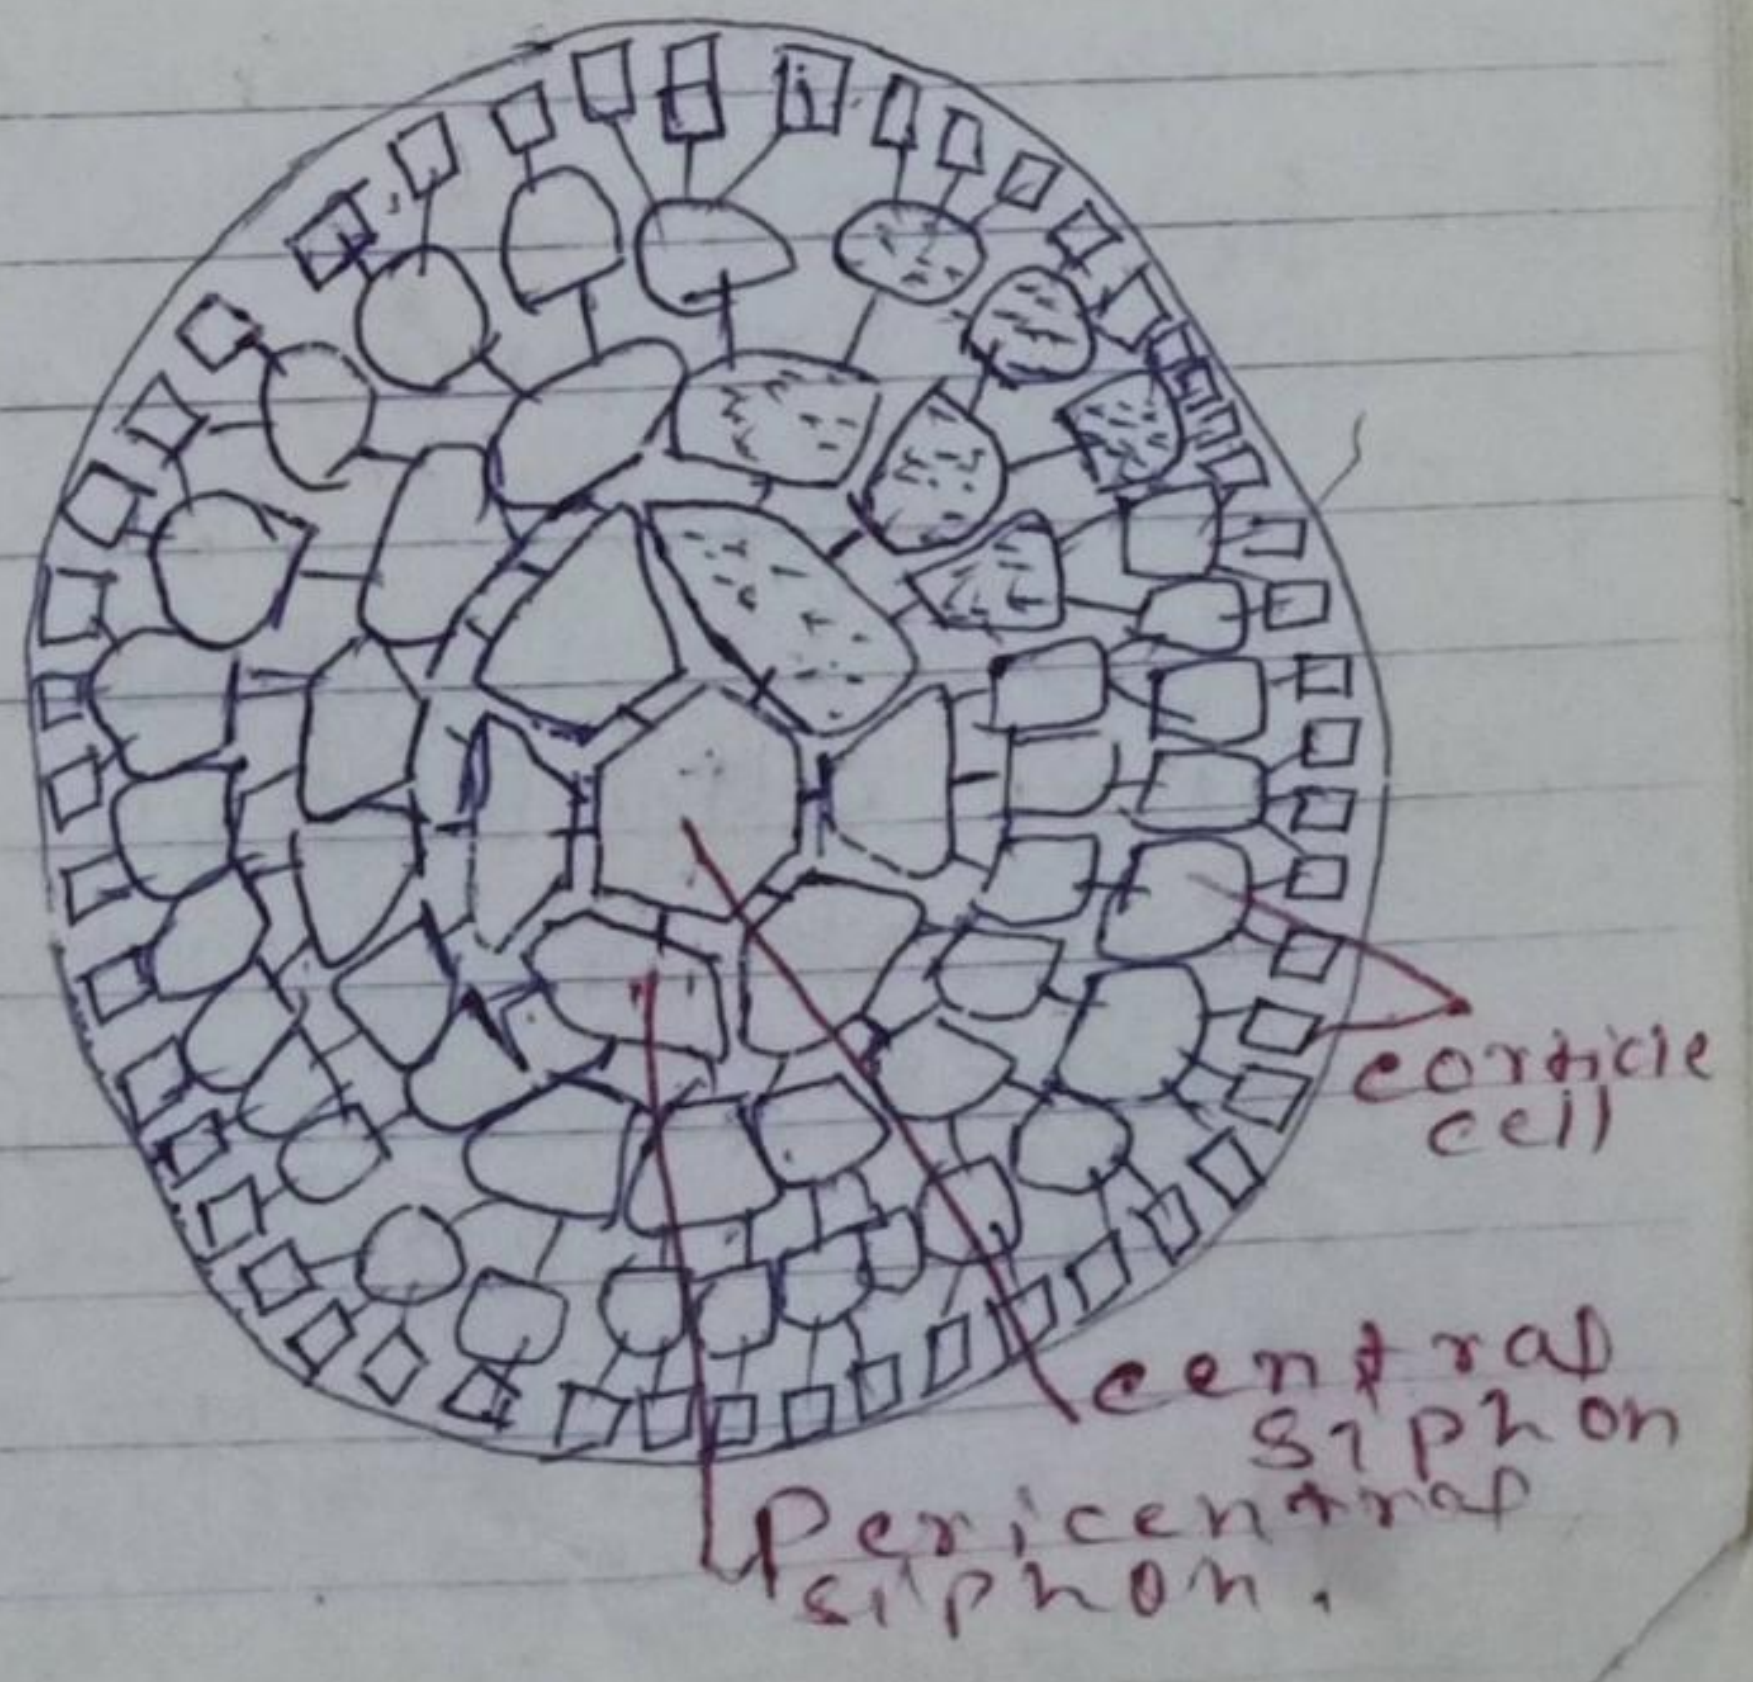 corticle
cell
central
siphon
Pericentral
siphon.